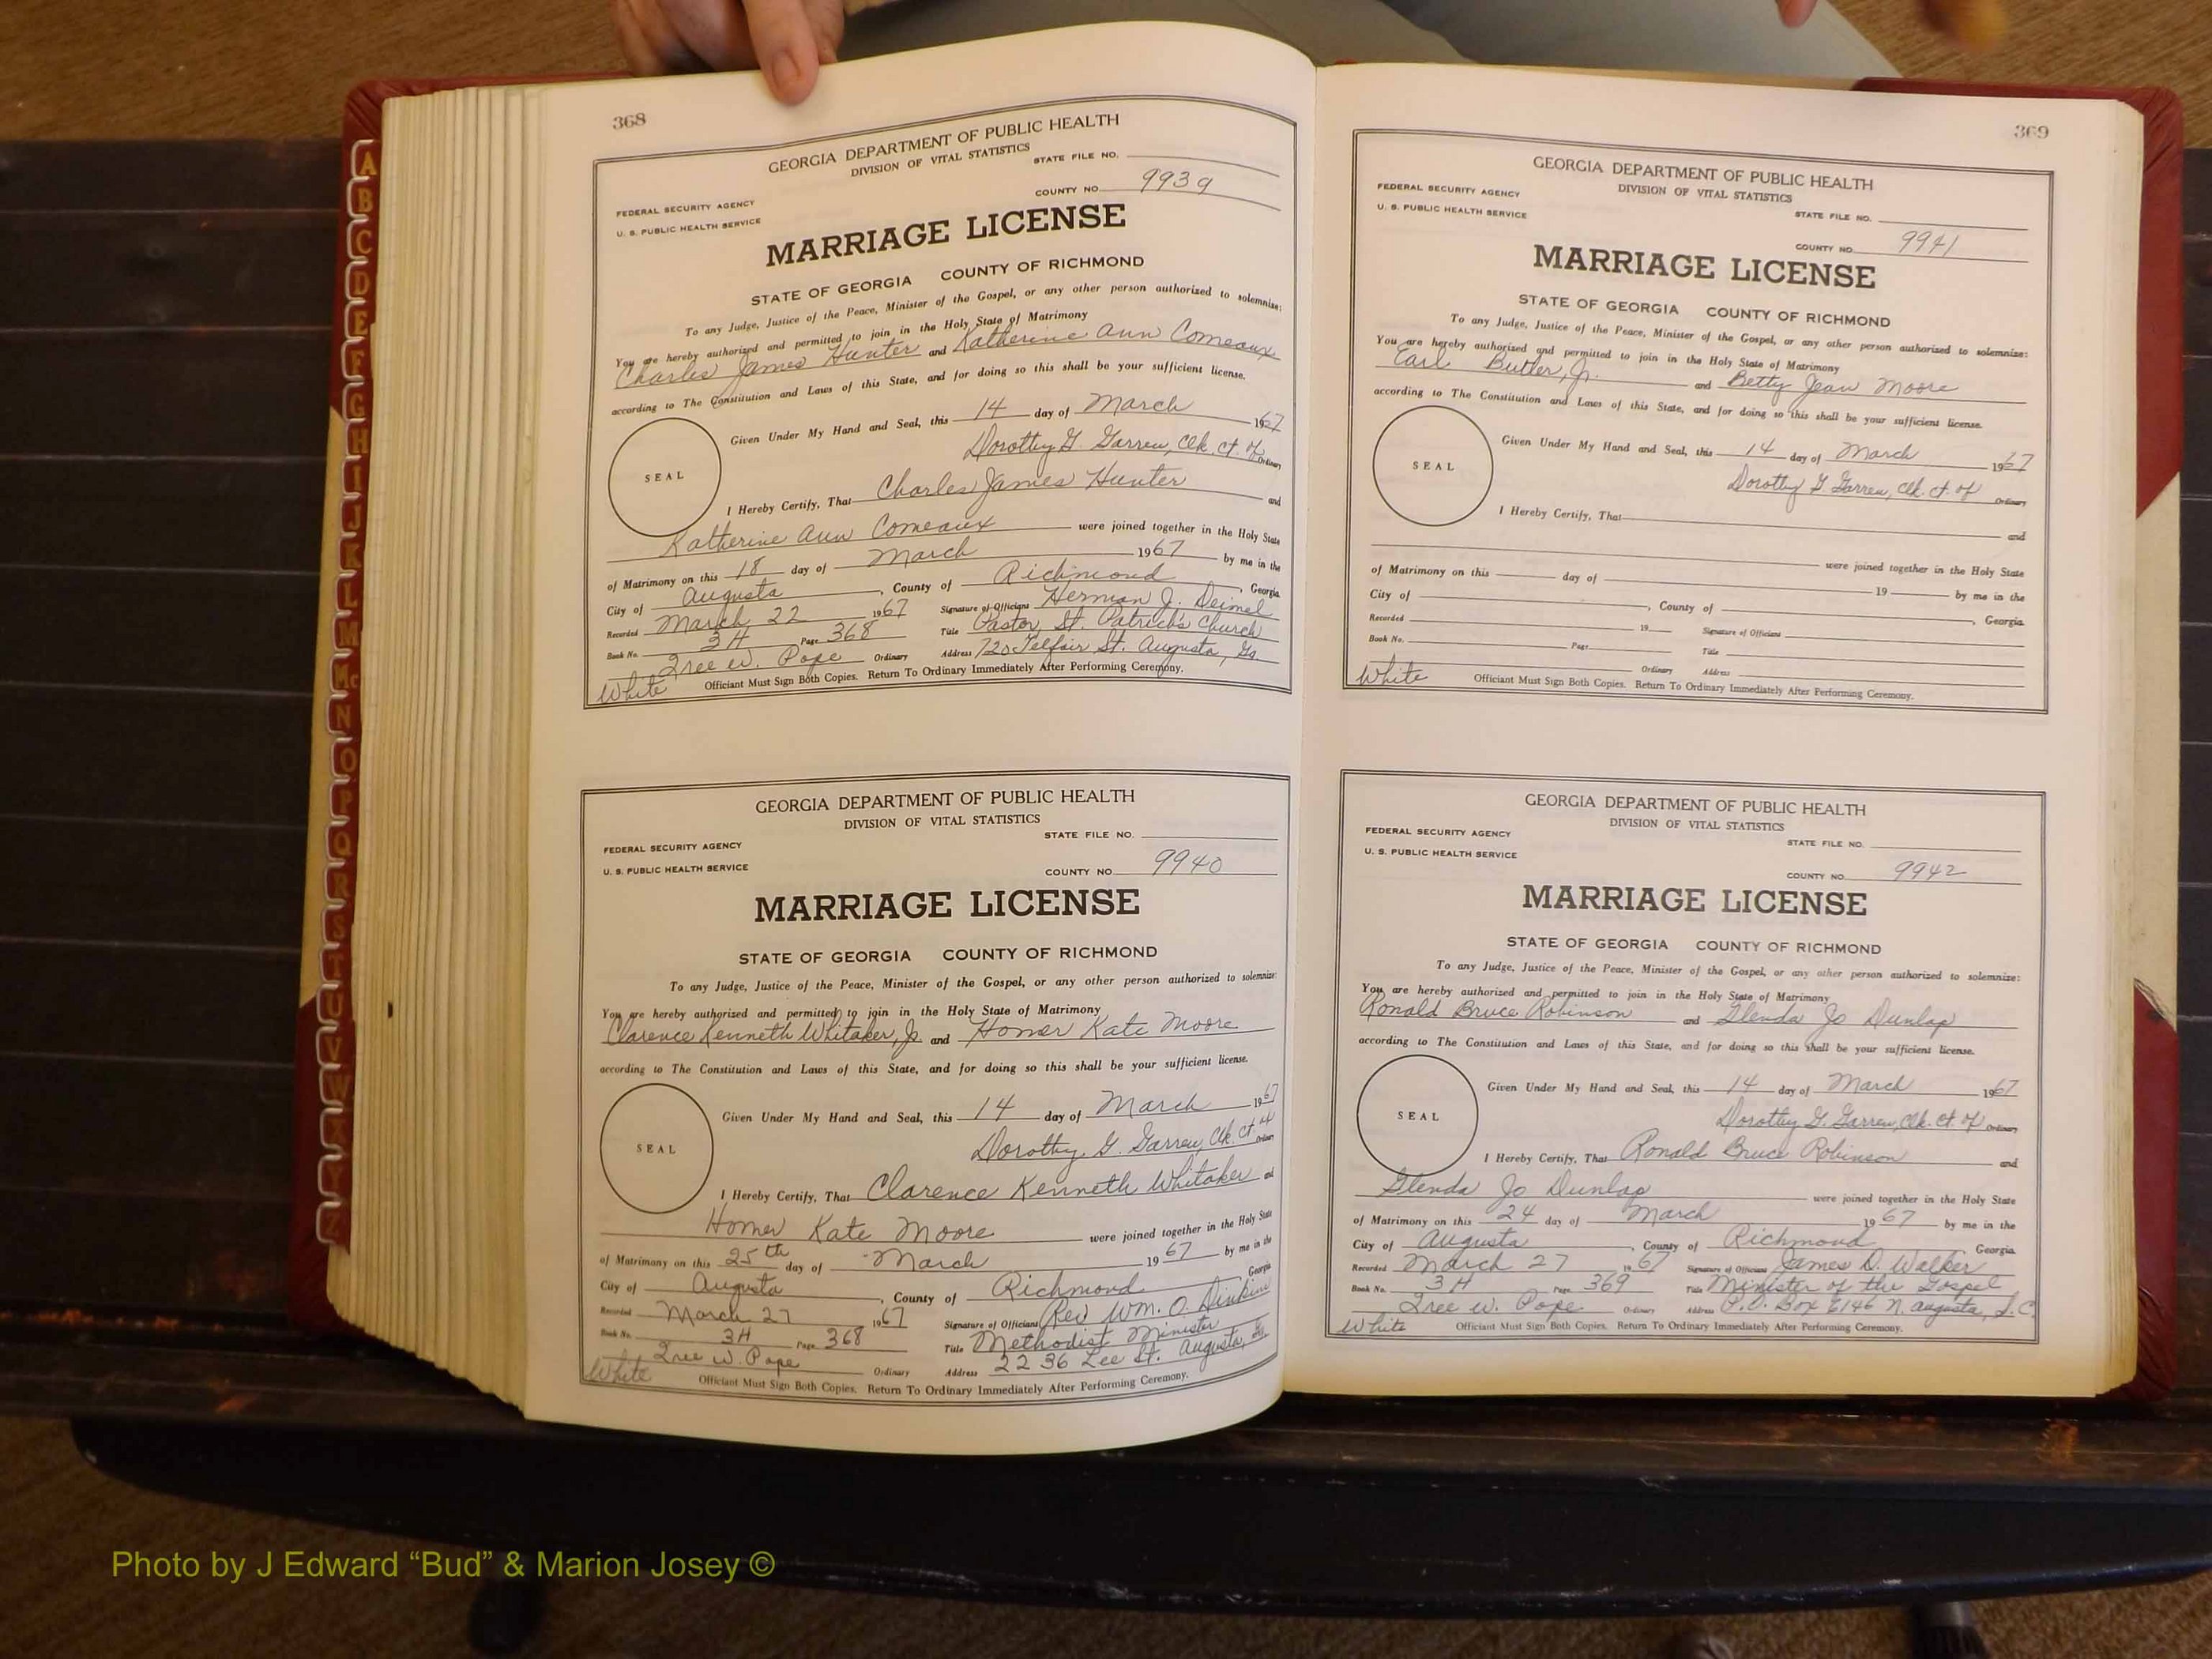 A
B
C
D
E
F
G
H
I
J
K
L
M
Mc
N
O
P
Q
R
S
T
U
V
W
X
Y
Z
368
GEORGIA DEPARTMENT OF PUBLIC HEALTH
DIVISION OF VITAL STATISTICS
STATE FILE NO.
FEDERAL SECURITY AGENCY
U. S. PUBLIC HEALTH SERVICE
COUNTY NO. 9939
MARRIAGE LICENSE
STATE OF GEORGIA COUNTY OF RICHMOND
To any Judge, Justice of the Peace, Minister of the Gospel, or any other person authorized to solemnize:
You are hereby authorized and permitted to join in the Holy State of Matrimony
Charles James Hunter and Katherine Ann Comeaux
according to The Constitution and Laws of this State, and for doing so this shall be your sufficient license.
Given Under My Hand and Seal, this 14 day of March 1967
Dorothy G. Garren, Clk. Ct. of Ordinary
SEAL
I Hereby Certify, That Charles James Hunter and
Katherine Ann Comeaux were joined together in the Holy State
of Matrimony on this 18 day of March 1967 by me in the
City of Augusta, County of Richmond, Georgia
Recorded March 22 1967 Signature of Officiant Herman J. Deimel
Book No. 3H Page 368 Title Pastor, St. Patrick's Church
Iree W. Pope Ordinary Address 720 Telfair St. Augusta, Ga.
White Officiant Must Sign Both Copies. Return To Ordinary Immediately After Performing Ceremony.
GEORGIA DEPARTMENT OF PUBLIC HEALTH
DIVISION OF VITAL STATISTICS
STATE FILE NO.
FEDERAL SECURITY AGENCY
U. S. PUBLIC HEALTH SERVICE
COUNTY NO. 9940
MARRIAGE LICENSE
STATE OF GEORGIA COUNTY OF RICHMOND
To any Judge, Justice of the Peace, Minister of the Gospel, or any other person authorized to solemnize:
You are hereby authorized and permitted to join in the Holy State of Matrimony
Clarence Kenneth Whitaker, Jr. and Homer Kate Moore
according to The Constitution and Laws of this State, and for doing so this shall be your sufficient license.
Given Under My Hand and Seal, this 14 day of March 1967
Dorothy G. Garren, Clk. Ct. of Ordinary
SEAL
I Hereby Certify, That Clarence Kenneth Whitaker and
Homer Kate Moore were joined together in the Holy State
of Matrimony on this 25th day of March 1967 by me in the
City of Augusta, County of Richmond Georgia
Recorded March 27 1967 Signature of Officiant Rev Wm. O. Dinkins
Book No. 3H Page 368 Title Methodist Minister
Iree W. Pope Ordinary Address 2236 Lee St. Augusta, Ga.
White Officiant Must Sign Both Copies. Return To Ordinary Immediately After Performing Ceremony.
369
GEORGIA DEPARTMENT OF PUBLIC HEALTH
DIVISION OF VITAL STATISTICS
FEDERAL SECURITY AGENCY
U. S. PUBLIC HEALTH SERVICE
STATE FILE NO.
COUNTY NO. 9941
MARRIAGE LICENSE
STATE OF GEORGIA COUNTY OF RICHMOND
To any Judge, Justice of the Peace, Minister of the Gospel, or any other person authorized to solemnize:
You are hereby authorized and permitted to join in the Holy State of Matrimony
Earl Butler, Jr. and Betty Jean Moore
according to The Constitution and Laws of this State, and for doing so this shall be your sufficient license.
Given Under My Hand and Seal, this 14 day of March 1967
Dorothy G. Garren, Clk. Ct. of Ordinary
SEAL
I Hereby Certify, That and
were joined together in the Holy State
of Matrimony on this day of 19 by me in the
City of , County of , Georgia
Recorded 19 Signature of Officiant
Book No. Page Title
Ordinary Address
White Officiant Must Sign Both Copies. Return To Ordinary Immediately After Performing Ceremony.
GEORGIA DEPARTMENT OF PUBLIC HEALTH
DIVISION OF VITAL STATISTICS
FEDERAL SECURITY AGENCY
U. S. PUBLIC HEALTH SERVICE
STATE FILE NO.
COUNTY NO. 9942
MARRIAGE LICENSE
STATE OF GEORGIA COUNTY OF RICHMOND
To any Judge, Justice of the Peace, Minister of the Gospel, or any other person authorized to solemnize:
You are hereby authorized and permitted to join in the Holy State of Matrimony
Ronald Bruce Robinson and Glenda Jo Dunlap
according to The Constitution and Laws of this State, and for doing so this shall be your sufficient license.
Given Under My Hand and Seal, this 14 day of March 1967
Dorothy G. Garren, Clk. Ct. of Ordinary
SEAL
I Hereby Certify, That Ronald Bruce Robinson and
Glenda Jo Dunlap were joined together in the Holy State
of Matrimony on this 24 day of March 1967 by me in the
City of Augusta, County of Richmond, Georgia
Recorded March 27 1967 Signature of Officiant James D. Walker
Book No. 3H Page 369 Title Minister of the Gospel
Iree W. Pope Ordinary Address P.O. Box 6146 N. Augusta, S.C.
White Officiant Must Sign Both Copies. Return To Ordinary Immediately After Performing Ceremony.
Photo by J Edward “Bud” & Marion Josey ©